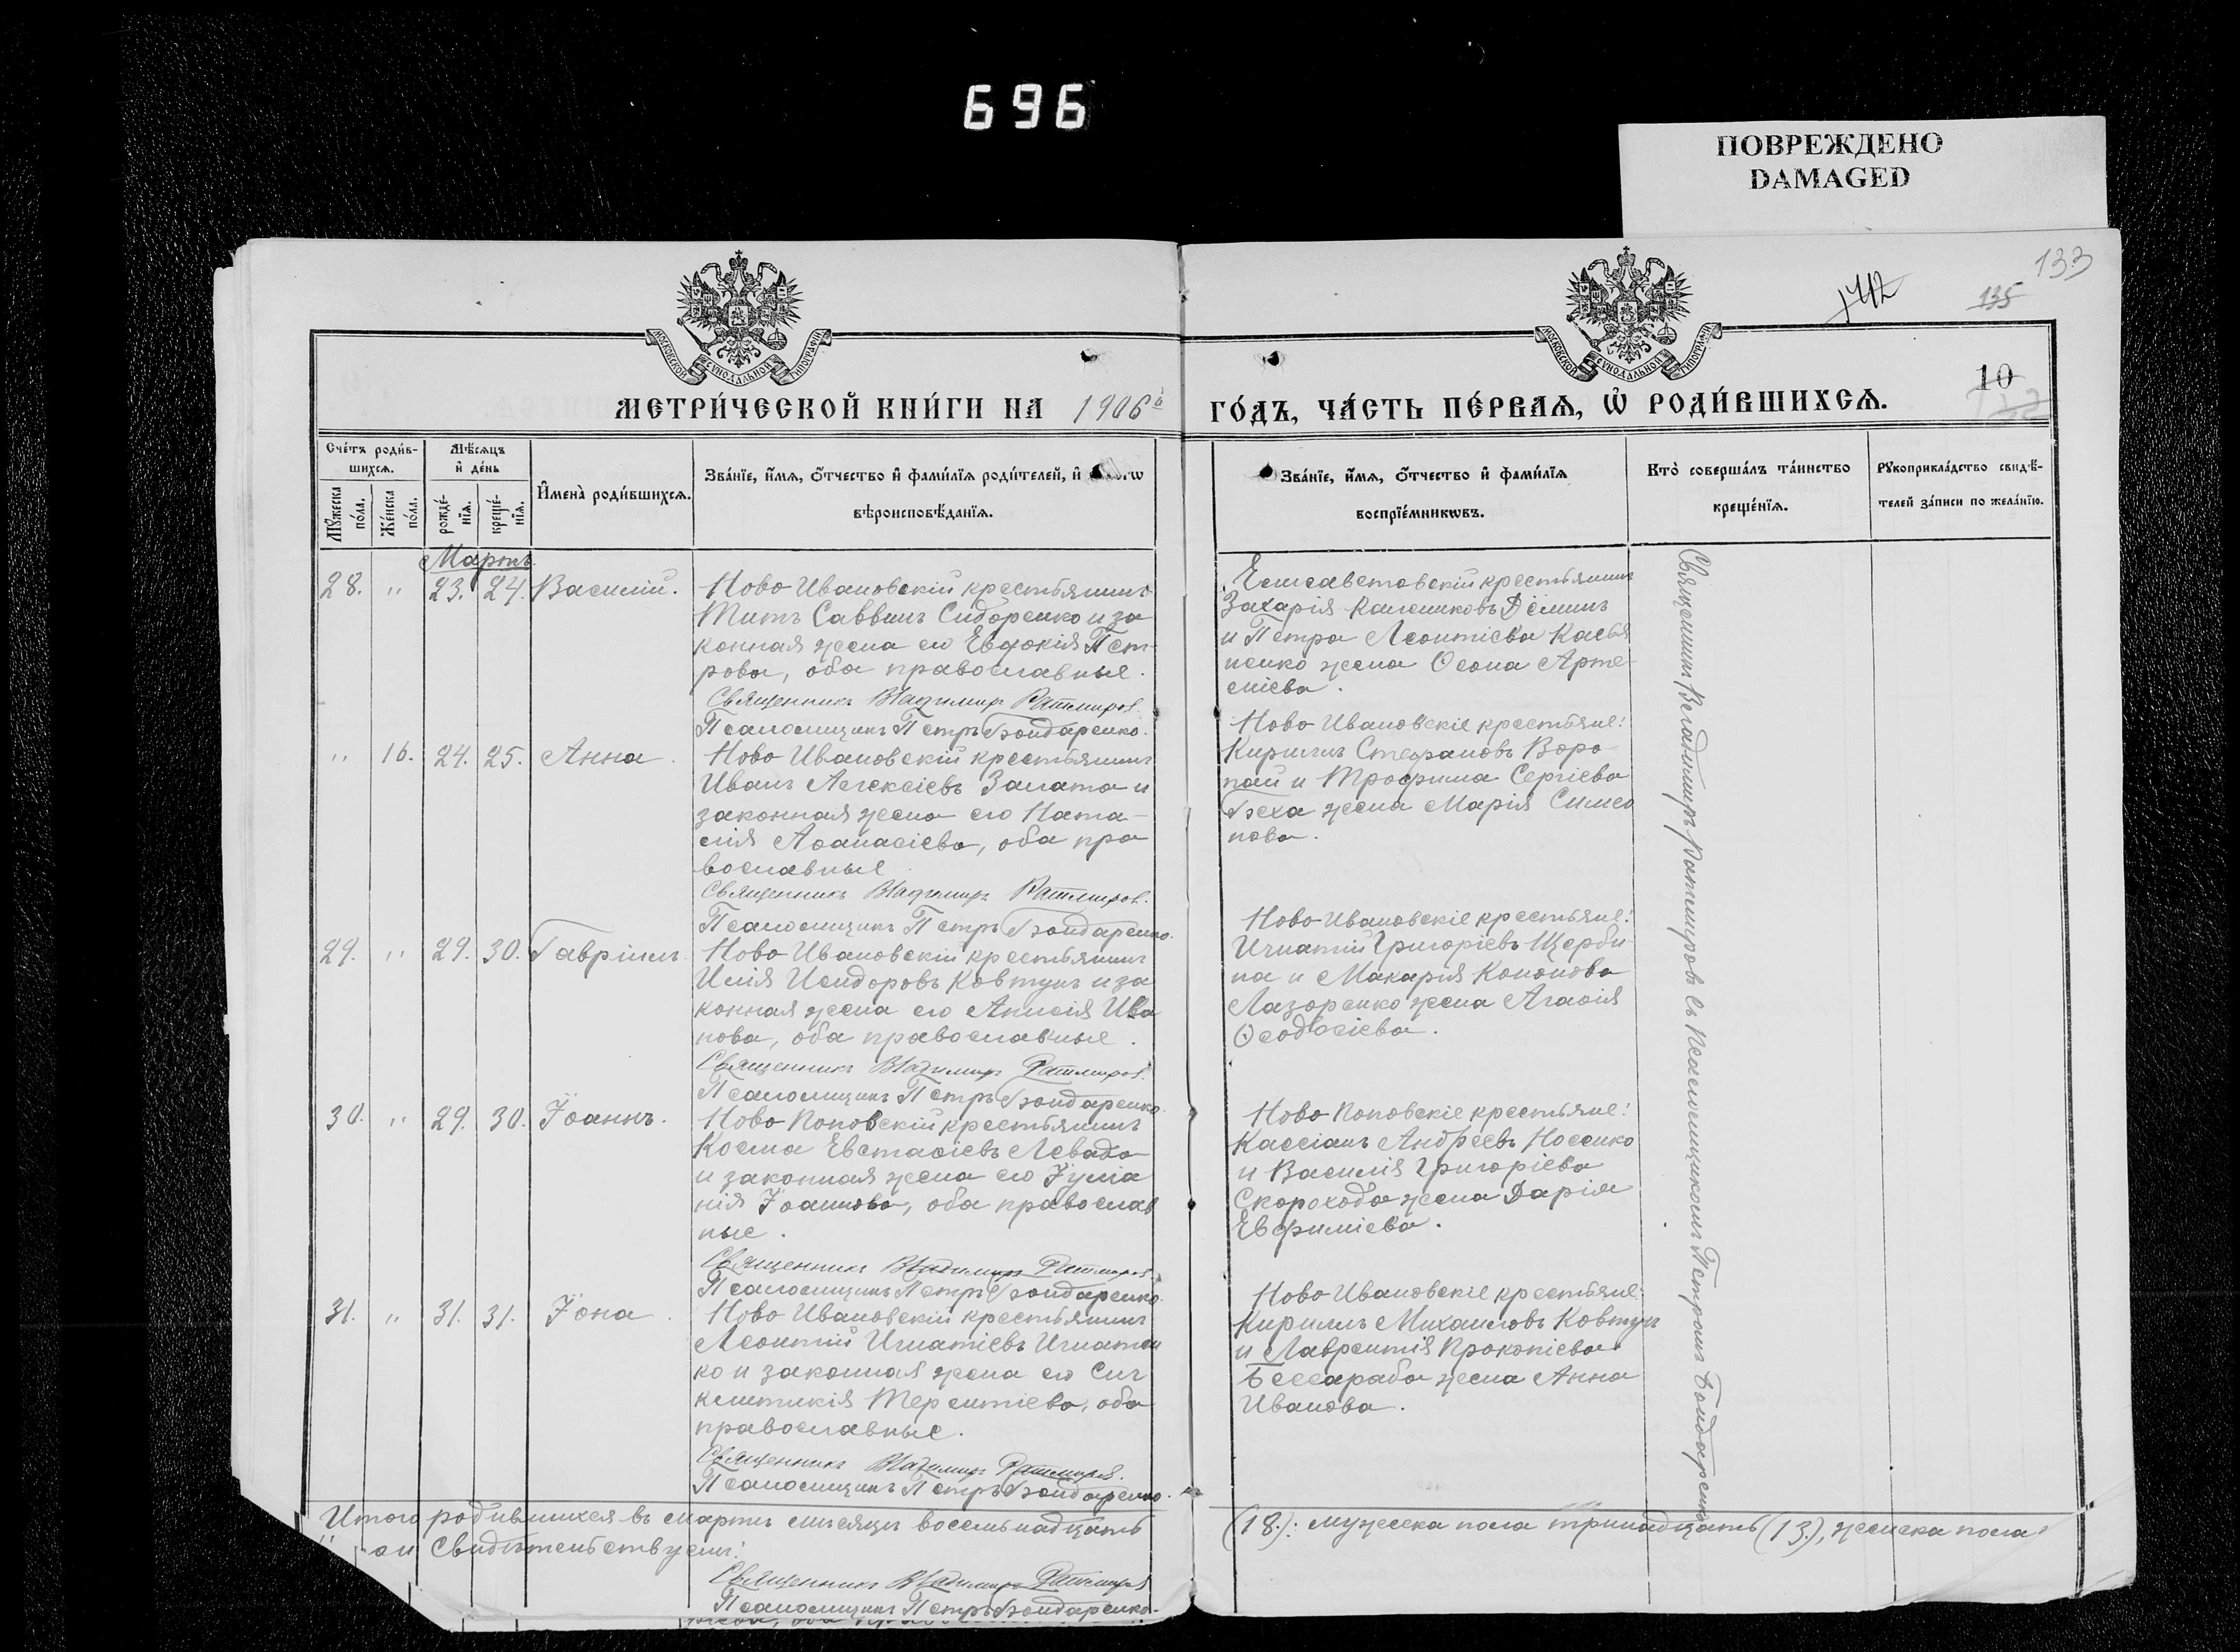 696
ПОВРЕЖДЕНО
DAMAGED
133
135
10
МОСКОВСКОЙ СѴНОДАЛЬНОЙ ТИПОГРАФІИ
МОСКОВСКОЙ СѴНОДАЛЬНОЙ ТИПОГРАФІИ
МЕТРИ́ЧЕСКОЙ КНИ́ГИ НА 1906й
ГО́ДЪ, ЧА́СТЬ ПЕ́РВАѦ, Ѡ҆ РОДИ́ВШИХСѦ.
Сче́тъ роди́в-
шихсѧ.
Мѹ́жеска
по́ла.
Же́нска
по́ла.
Мѣ́сѧцъ
и҆ де́нь
рожде́-
нїѧ.
креще́-
нїѧ.
И҆мена̀ роди́вшихсѧ.
Зва́нїе, и҆́мѧ, ѻ҆́тчество и҆ фами́лїѧ роди́телей, и҆
вѣроисповѣ́данїѧ.
Зва́нїе, и҆́мѧ, ѻ҆́тчество и҆ фами́лїѧ
воспрїе́мникѡвъ.
Кто̀ соверша́лъ та́инство
креще́нїѧ.
Рѹкоприкла́дство свидѣ́-
телей за́писи по жела́нїю.
Мартъ
28. " 23. 24. Василій.
Ново Ивановскій крестьянинъ
Титъ Саввинъ Сидоренко и за
конная жена его Евдокія Пет-
рова, оба православные.
Священникъ Владимиръ Ратмировъ.
Псаломщикъ Петръ Бондаренко.
Елисаветовскій крестьянинъ
Захарія Калениковъ Дёминъ
и Петра Леонтіева Касья
ненко жена Ѳеона Арте-
міева.
" 16. 24. 25. Анна.
Ново Ивановскій крестьянинъ
Иванъ Алексіевъ Залата и
законная жена его Ната-
лія Аѳанасіева, оба пра
вославные
Священникъ Владимиръ Ратмировъ.
Псаломщикъ Петръ Бондаренко.
Ново Ивановскіе крестьяне:
Кириллъ Стефановъ Воро-
пай и Трофима Сергіева
Беха жена Марія Симео
нова.
29. " 29. 30. Гавріилъ.
Ново Ивановскій крестьянинъ
Илія Исидоровъ Ковтунъ и за
конная жена его Анисія Ива
нова, оба православные.
Священникъ Владимиръ Ратмировъ.
Псаломщикъ Петръ Бондаренко.
Ново Ивановскіе крестьяне:
Игнатій Григоріевъ Щерби-
на и Макарія Кононова
Лазоренко жена Агаѳія
Ѳеодосіева.
30. " 29. 30. Іоаннъ.
Ново Поповскій крестьянинъ
Косма Евстаѳіевъ Левада
и законная жена его Іуліа
нія Іоаннова, оба православ
ные.
Священникъ Владимиръ Ратмировъ.
Псаломщикъ Петръ Бондаренко.
Ново Поповскіе крестьяне:
Кассіанъ Андреевъ Носенко
и Василія Григоріева
Скорохода жена Дарія
Евфиміева.
31. " 31. 31. Іона.
Ново Ивановскій крестьянинъ
Леонтій Игнатіевъ Игнатен
ко и законная жена его Син
клитикія Терентіева, оба
православные.
Священникъ Владимиръ Ратмировъ.
Псаломщикъ Петръ Бондаренко.
Ново Ивановскіе крестьяне:
Кириллъ Михаиловъ Ковтунъ
и Лаврентія Прокопіева
Бессараба жена Анна
Иванова.
Священникъ Владимиръ Ратмировъ съ Псаломщикомъ Петромъ Бондаренко
Итого родившихся въ мартѣ мѣсяцѣ восемнадцать
(18.): мужеска пола тринадцать (13.), женска пола
Свидѣтельствуемъ:
Священникъ Владимиръ Ратмировъ
Псаломщикъ Петръ Бондаренко.